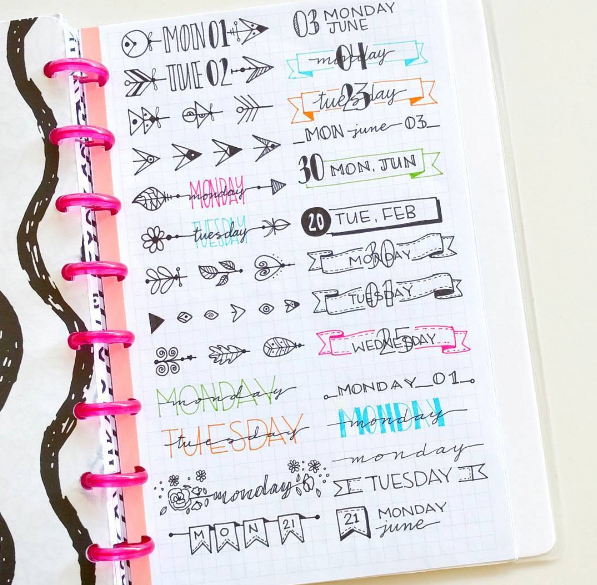 MON 01
TUE 02
MONDAY monday
TUESDAY tuesday
MONDAY monday
TUESDAY tuesday
monday 6
MON 21
03 MONDAY JUNE
monday 04
tuesday 23
MON june 03
30 MON, JUN
20 TUE, FEB
MONDAY 30
TUESDAY 01
WEDNESDAY 25
MONDAY_01
MONDAY monday
monday
TUESDAY
21 MONDAY
june